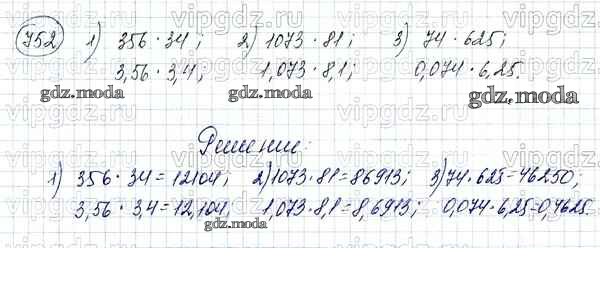 752 1) 356 · 34; 2) 1073 · 81; 3) 74 · 625;
3,56 · 3,4; 1,073 · 8,1; 0,074 · 6,25.
gdz.moda gdz.moda gdz.moda
Решение:
1) 356 · 34 = 12104; 2) 1073 · 81 = 86913; 3) 74 · 625 = 46250;
3,56 · 3,4 = 12,104; 1,073 · 8,1 = 8,6913; 0,074 · 6,25 = 0,4625.
gdz.moda gdz.moda
vipgdz.ru vipgdz.ru vipgdz.ru